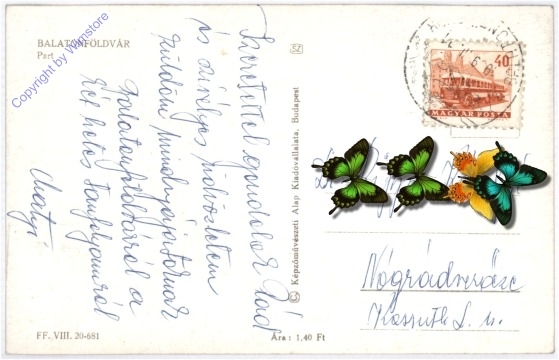 BALATONFÖLDVÁR
Part
Copyright by Wimstore
Szeretettel gondolok Rád
és szívélyes üdvözletem
küldöm mindnyájatoknak
Balatonföldvárról a
két hetes tanfolyamról
FF. VIII. 20-681
SZ
© Képzőművészeti Alap Kiadóvállalata, Budapest
Ára: 1,40 Ft
40
MAGYAR POSTA
Nógrádverőce
Kossuth L. u.